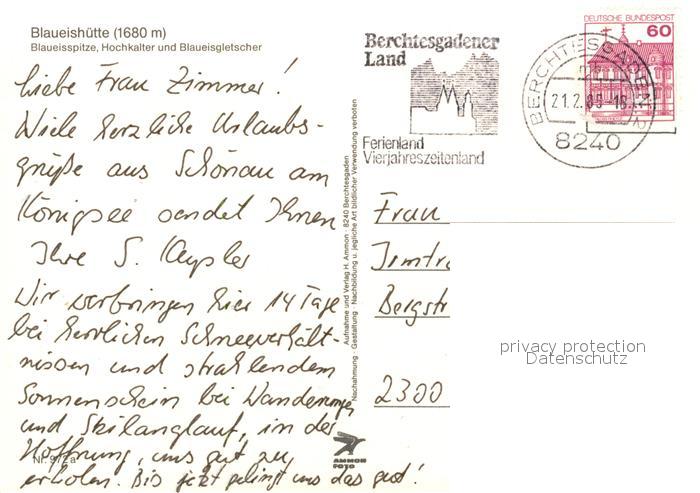 Blaueishütte (1680 m)
Blaueisspitze, Hochkalter und Blaueisgletscher
Liebe Frau Zimmer!
Viele herzliche Urlaubs-
grüße aus Schönau am
Königsee sendet Ihnen
Ihre S. Keysler
Wir verbringen hier 14 Tage
bei herrlichen Schneeverhält-
nissen und strahlendem
Sonnenschein bei Wanderungen
und Skilanglauf, in der
Hoffnung, uns gut zu
erholen. Bis jetzt gelingt uns das gut!
Nr. 972a
Aufnahme und Verlag H. Ammon · 8240 Berchtesgaden
Nachahmung · Gestaltung · Nachbildung u. jegliche Art bildlicher Verwendung verboten
AMMON
FOTO
Berchtesgadener
Land
Ferienland
Vierjahreszeitenland
DEUTSCHE BUNDESPOST
60
BERCHTESGADEN
21.2.
8240
Frau
Irmtr
Bergstr
2300
privacy protection
Datenschutz